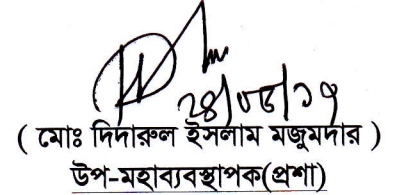 ২৪/০৮/১৭
( মোঃ দিদারুল ইসলাম মজুমদার )
উপ-মহাব্যবস্থাপক(প্রশা)